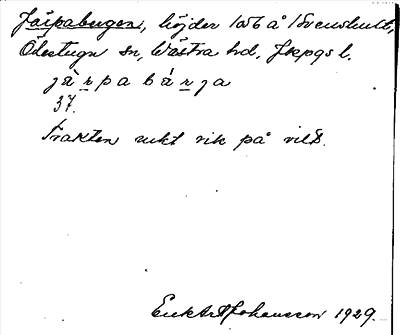 Järpabergen, höjder 1a56 å 1 Svenshult,
Ödestugu sn, Västra hd, Jkpgs l.
järpabárja
37.
Trakten rikt rik på vilt.
Erik Art Johansson 1929.